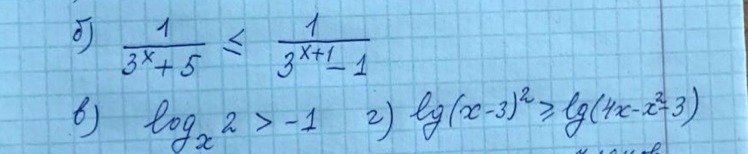 б) 1/(3^x + 5) ≤ 1/(3^(x+1) - 1)
в) log_x 2 > -1 г) lg(x-3)² ≥ lg(4x-x²-3)